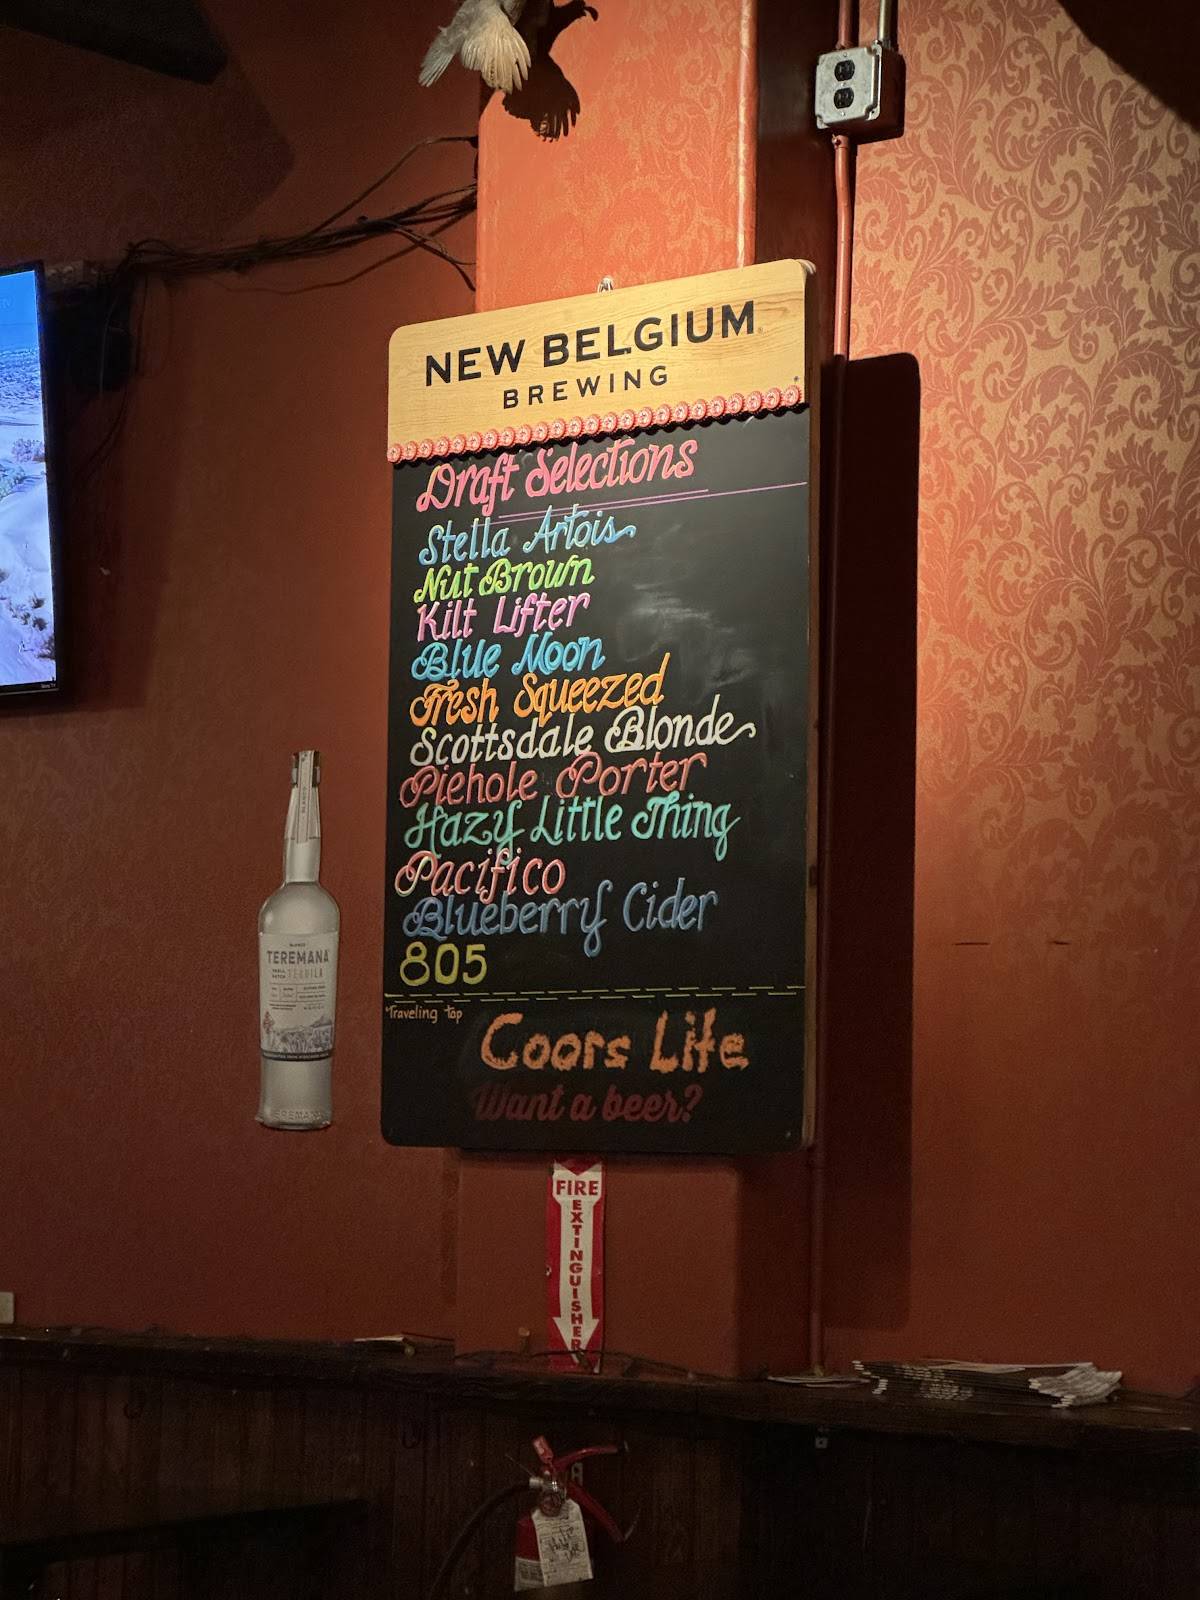 NEW BELGIUM
BREWING
Draft Selections
Stella Artois
Nut Brown
Kilt Lifter
Blue Moon
Fresh Squeezed
Scottsdale Blonde
Piehole Porter
Hazy Little Thing
Pacifico
Blueberry Cider
805
Traveling Tap
Coors Lite
Want a beer?
BLANCO
TEREMANA
SMALL BATCH TEQUILA
TEREMANA
FIRE
EXTINGUISHER